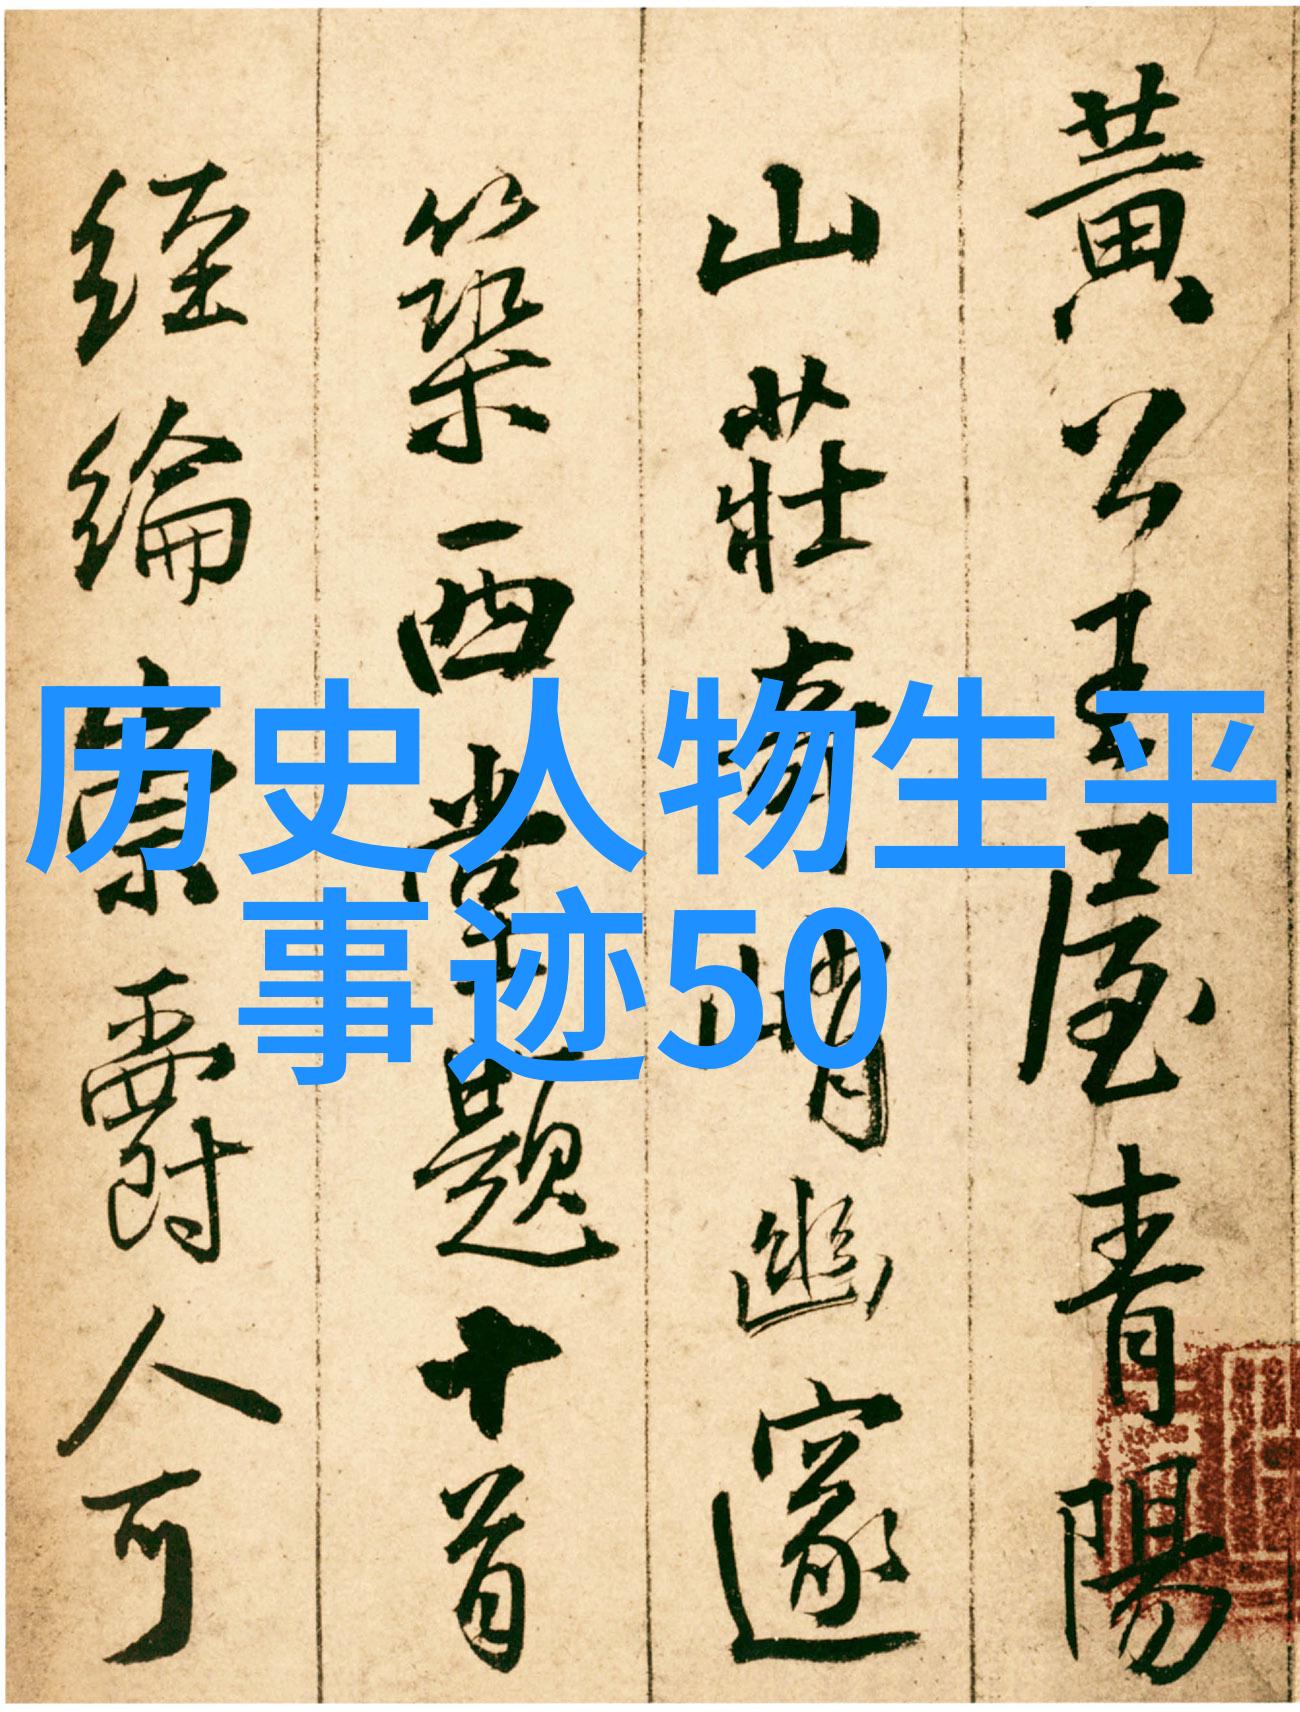 黄公王屋青陽
山莊奇峭幽邃
築西堂題十首
經綸寮爵人可
历史人物生平
事迹50